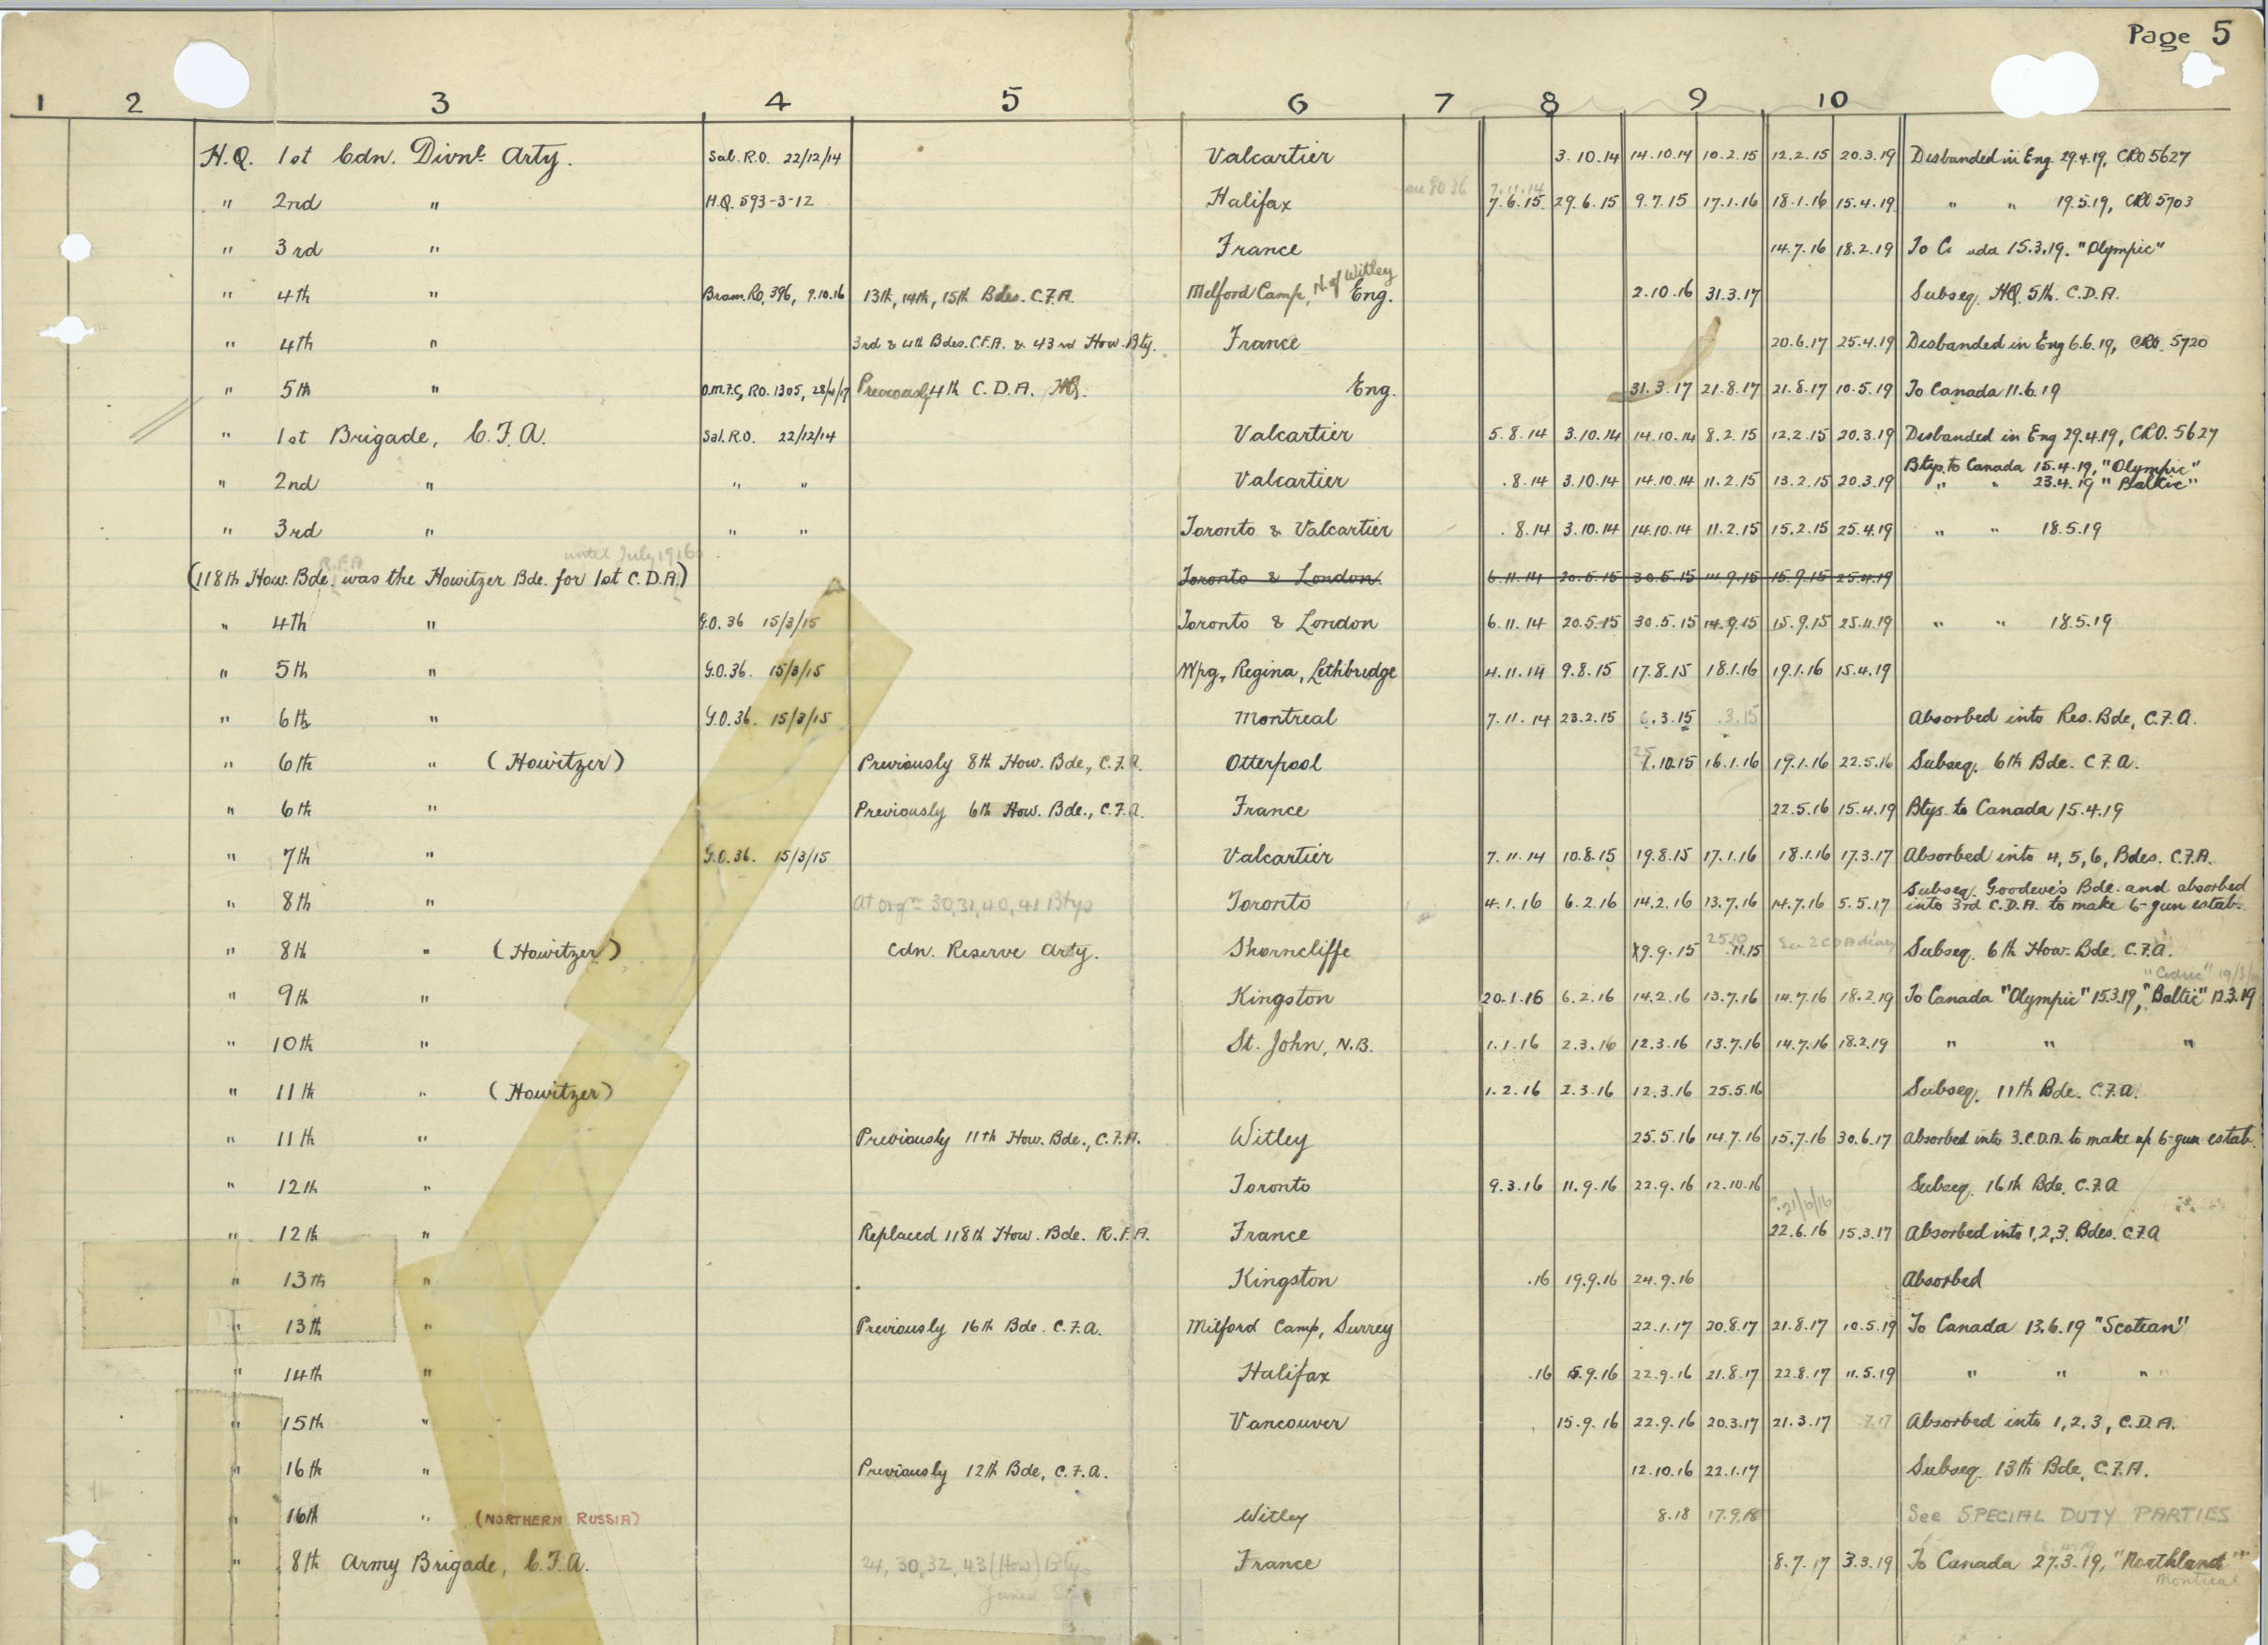 Page 5
1 2 3 4 5 6 7 8 9 10
H.Q. 1st Cdn. Divnl. Arty. Sal. R.O. 22/12/14 Valcartier 3.10.14 14.10.14 10.2.15 12.2.15 20.3.19 Disbanded in Eng 29.4.19, CRO 5627
" 2nd " H.Q. 593-3-12 Halifax 7.11.14 7.6.15 29.6.15 9.7.15 17.1.16 18.1.16 15.4.19 " " 19.5.19, CRO 5703
" 3rd " France 14.7.16 18.2.19 To C ada 15.3.19. "Olympic"
" 4th " Bram. Ro. 396, 9.10.16 13th, 14th, 15th Bdes. C.F.A. Melford Camp, N. of Witley Eng. 2.10.16 31.3.17 Subseq. HQ. 5th. C.D.A.
" 4th " 3rd & 4th Bdes. C.F.A. & 43rd How. Bty. France 20.6.17 25.4.19 Disbanded in Eng 6.6.19, CRO. 5720
" 5th " O.M.F.C, RO. 1305, 28/4/17 Previously 4th C.D.A. HQ. Eng. 31.3.17 21.8.17 21.8.17 10.5.19 To Canada 11.6.19
" 1st Brigade, C.F.A. Sal. R.O. 22/12/14 Valcartier 5.8.14 3.10.14 14.10.14 8.2.15 12.2.15 20.3.19 Disbanded in Eng 29.4.19, CRO. 5627
" 2nd " " " Valcartier .8.14 3.10.14 14.10.14 11.2.15 13.2.15 20.3.19 Btys. to Canada 15.4.19, "Olympic"
" " 23.4.19 "Baltic"
" 3rd " " " Toronto & Valcartier .8.14 3.10.14 14.10.14 11.2.15 15.2.15 25.4.19 " " 18.5.19
R.F.A until July 1916
(118th How. Bde. was the Howitzer Bde. for 1st C.D.A.) Toronto & London 6.11.14 20.5.15 30.5.15 14.9.15 15.9.15 25.4.19
" 4th " G.O. 36 15/3/15 Toronto & London 6.11.14 20.5.15 30.5.15 14.9.15 15.9.15 25.4.19 " " 18.5.19
" 5th " G.O. 36. 15/3/15 Wpg., Regina, Lethbridge 4.11.14 9.8.15 17.8.15 18.1.16 19.1.16 15.4.19
" 6th " G.O. 36. 15/3/15 Montreal 7.11.14 23.2.15 6.3.15 .3.15 Absorbed into Res. Bde, C.F.A.
" 6th " (Howitzer) Previously 8th How. Bde., C.F.A. Otterpool 25.10.15 16.1.16 19.1.16 22.5.16 Subseq. 6th Bde. C.F.A.
" 6th " Previously 6th How. Bde., C.F.A. France 22.5.16 15.4.19 Btys. to Canada 15.4.19
" 7th " G.O. 36. 15/3/15 Valcartier 7.11.14 10.8.15 19.8.15 17.1.16 18.1.16 17.3.17 Absorbed into 4, 5, 6, Bdes. C.F.A.
" 8th " At orgn 30, 31, 40, 41 Btys Toronto 4.1.16 6.2.16 14.2.16 13.7.16 14.7.16 5.5.17 Subseq. Goodeve's Bde. and absorbed
into 3rd C.D.A. to make 6-gun estab.
" 8th " (Howitzer) Cdn. Reserve Arty. Shorncliffe 19.9.15 25.10 .11.15 See 2 CDA diary Subseq. 6th How. Bde. C.F.A.
"Cedric" 19/3/
" 9th " Kingston 20.1.16 6.2.16 14.2.16 13.7.16 14.7.16 18.2.19 To Canada "Olympic" 15.3.19, "Baltic" 12.3.19
" 10th " St. John, N.B. 1.1.16 2.3.16 12.3.16 13.7.16 14.7.16 18.2.19 " " "
" 11th " (Howitzer) 1.2.16 2.3.16 12.3.16 25.5.16 Subseq. 11th Bde. C.F.A.
" 11th " Previously 11th How. Bde., C.F.A. Witley 25.5.16 14.7.16 15.7.16 30.6.17 Absorbed into 3.C.D.A. to make up 6-gun estab.
" 12th " Toronto 9.3.16 11.9.16 22.9.16 12.10.16 Subseq. 16th Bde. C.F.A
21/6/16
" 12th " Replaced 118th How. Bde. R.F.A. France 22.6.16 15.3.17 Absorbed into 1, 2, 3. Bdes. C.F.A
" 13th " Kingston .16 19.9.16 24.9.16 Absorbed
" 13th " Previously 16th Bde. C.F.A. Milford Camp, Surrey 22.1.17 20.8.17 21.8.17 10.5.19 To Canada 13.6.19 "Scotian"
" 14th " Halifax .16 15.9.16 22.9.16 21.8.17 22.8.17 11.5.19 " " "
" 15th " Vancouver 15.9.16 22.9.16 20.3.17 21.3.17 7.17 Absorbed into 1, 2, 3, C.D.A.
" 16th " Previously 12th Bde, C.F.A. 12.10.16 22.1.17 Subseq. 13th Bde, C.F.A.
" 16th " (NORTHERN RUSSIA) Witley 8.18 17.9.18 See SPECIAL DUTY PARTIES
" 8th Army Brigade, C.F.A. 24, 30, 32, 43 (How) Btys France 8.7.17 3.3.19 To Canada 27.3.19, "Northland"
Joined Montreal